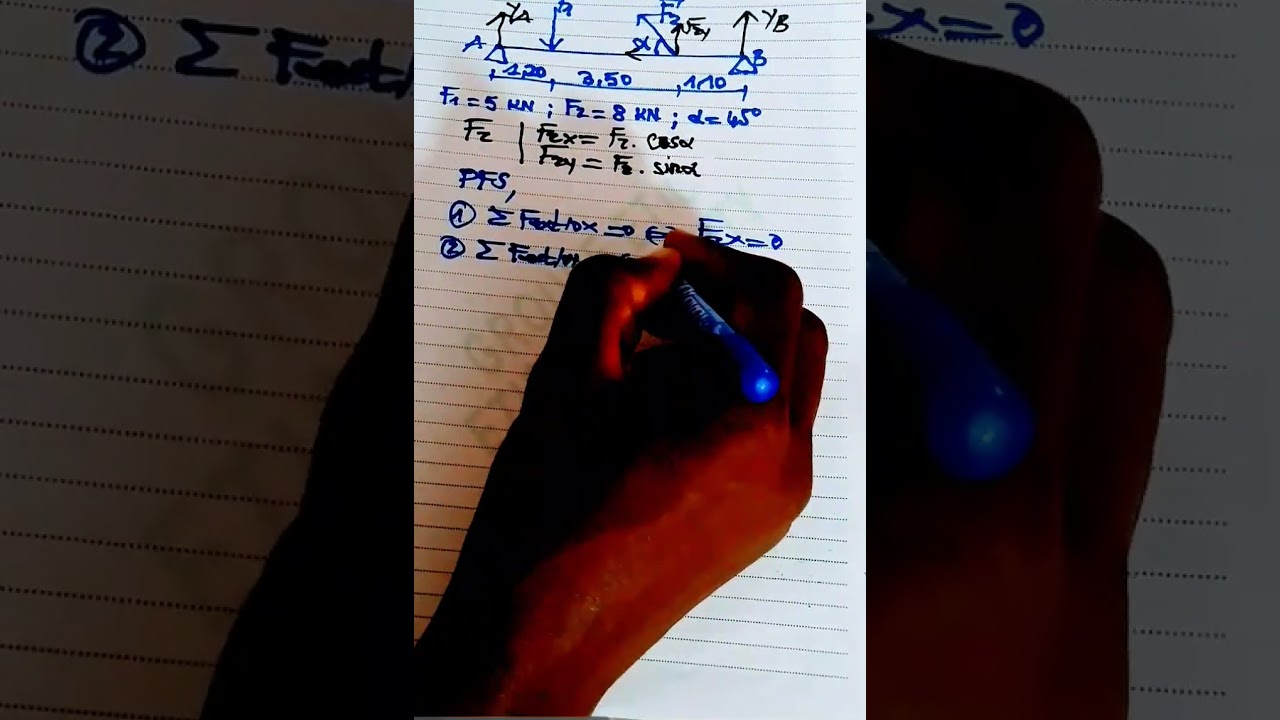 YA F1 F2 F2y YB
A α B
1,20 3,50 1,10
F1 = 5 KN ; F2 = 8 KN ; α = 45°
F2 | F2x = F2 . cosα
F2y = F2 . sinα
PFS,
① Σ Fext/ox = 0 ⇔ F2x = 0
② Σ Fext/oy